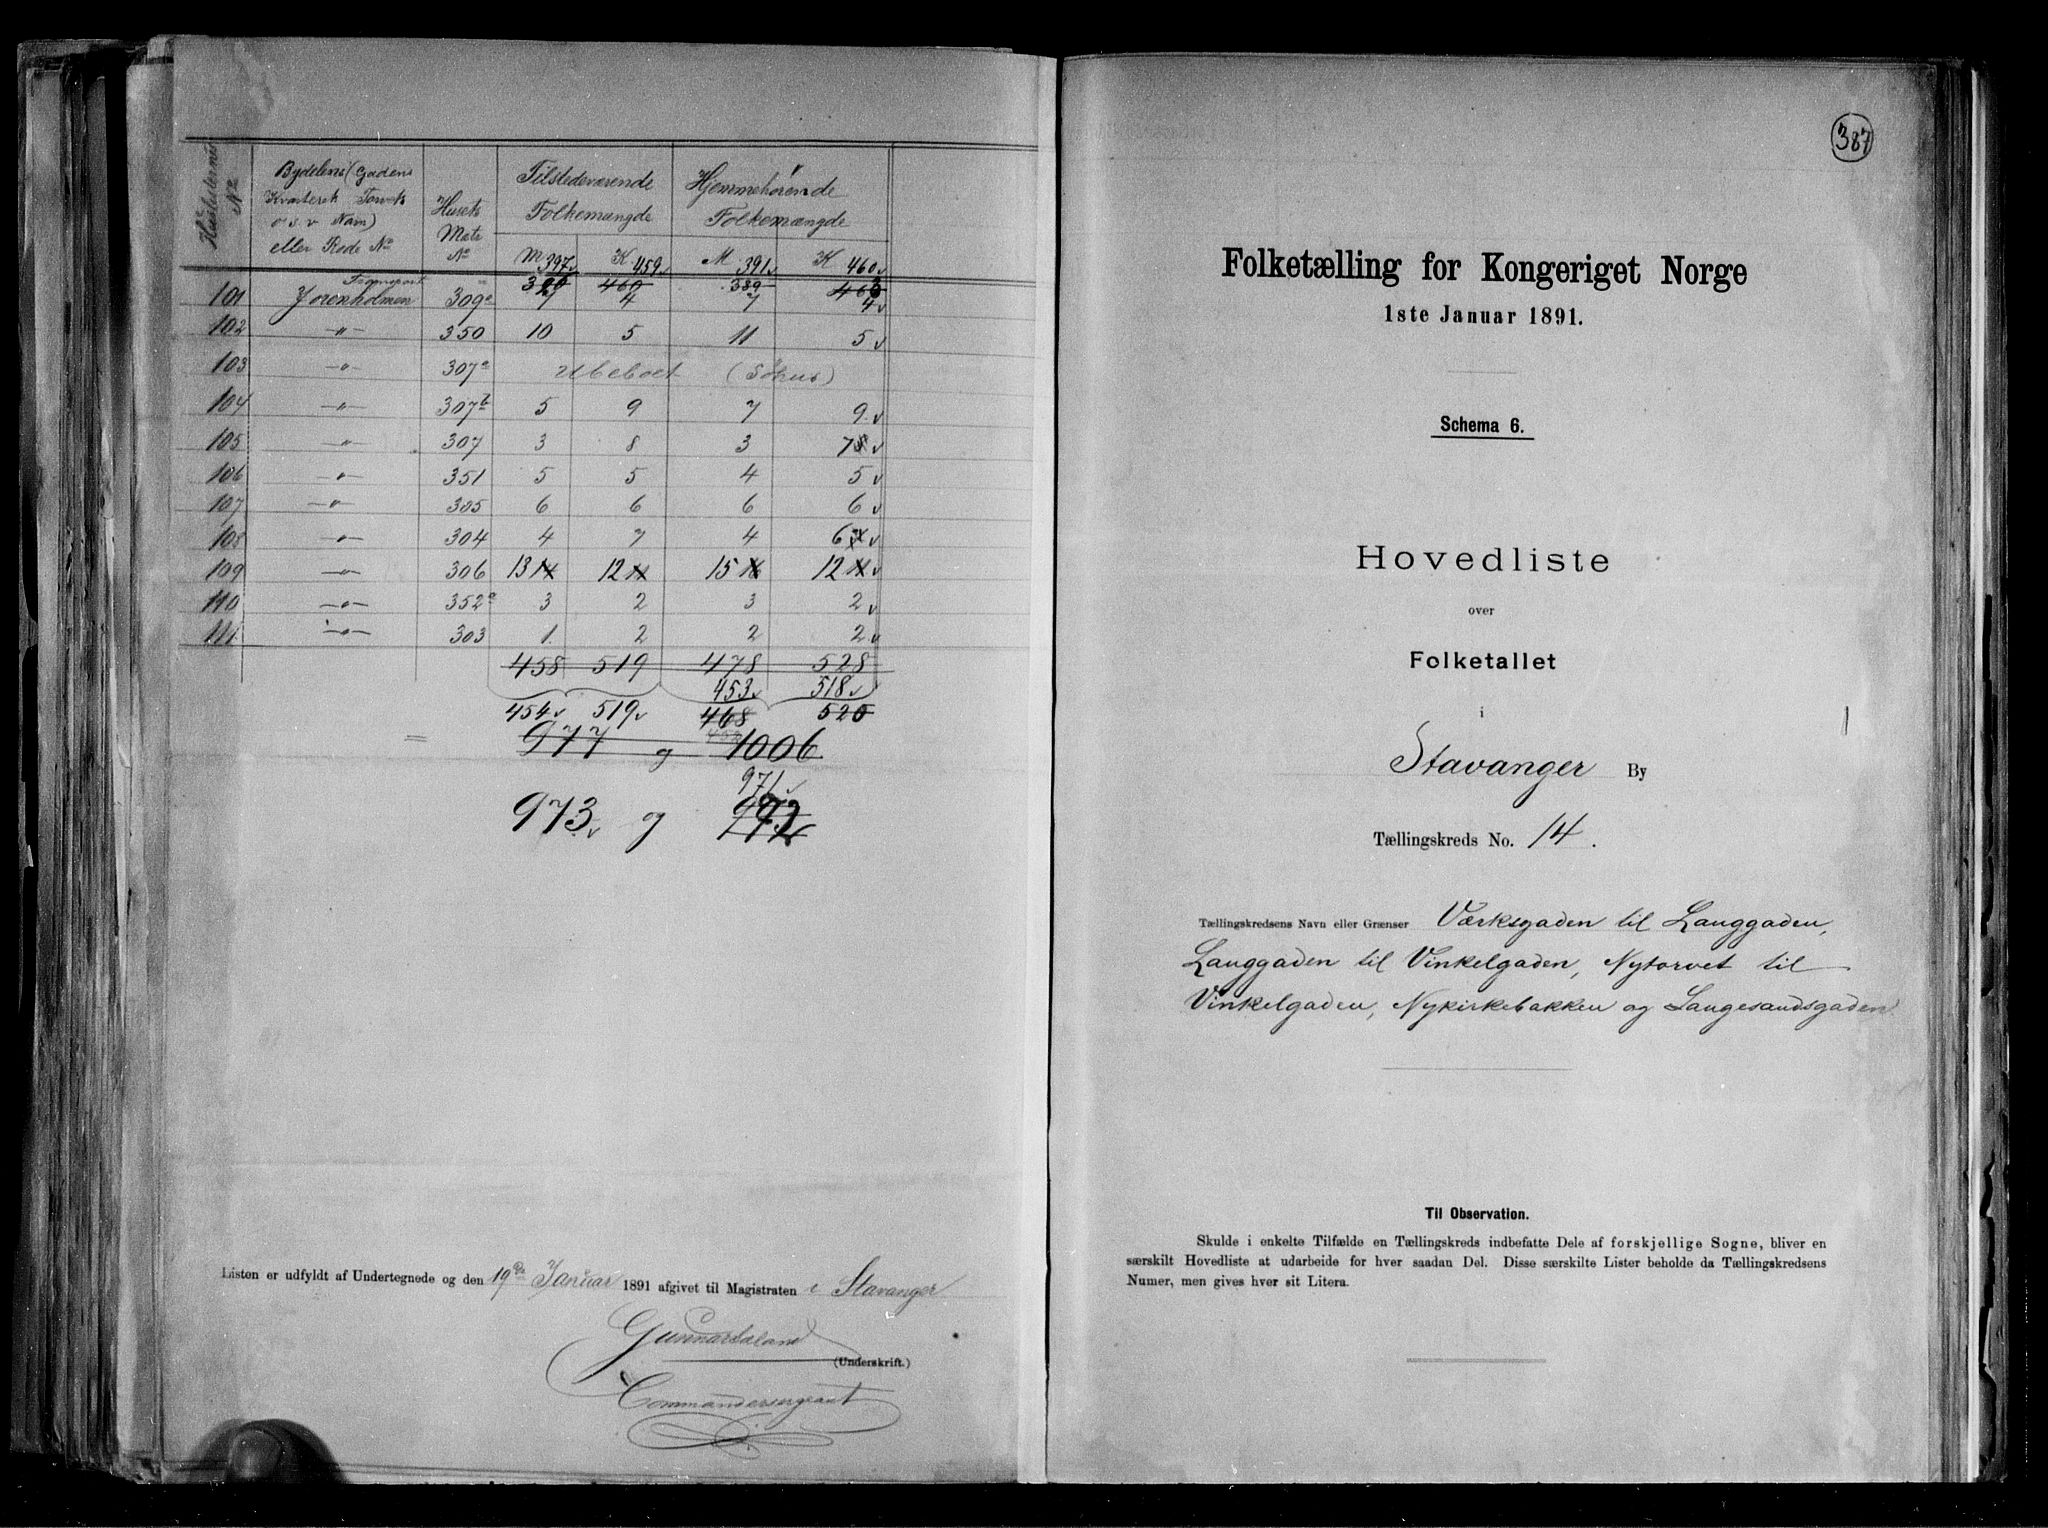 Huslisternes No
Bydelens (Gadens
Kvarterets Torvets
o.s.v. Navn)
eller Rode No
Husets
Matr
No
Tilstedeværende
Folkemængde
Hjemmehörende
Folkemængde
M 397 K. 459 M 391 K 460
Transport 460 389
101 Jorenholmen 309a 7 4 7 4
102 -"- 350 10 5 11 5
103 -"- 307a Ubeboet (Söhus)
104 -"- 307b 5 9 7 9
105 -"- 307 3 8 3 7 8
106 -"- 351 5 5 4 5
107 -"- 305 6 6 6 6
108 -"- 304 4 7 4 6
109 -"- 306 13 12 15 12
110 -"- 352a 3 2 3 2
111. -"- 303 1. 2 2 2
458 519 478 528
453 518
454 519 468 520
977 og 1006
971
973 og 992
Listen er udfyldt af Undertegnede og den 19de Januar 1891 afgivet til Magistraten i Stavanger
Gunnar Aaland
(Underskrift.)
Commandersergeant
387
Folketælling for Kongeriget Norge
1ste Januar 1891.
Schema 6.
Hovedliste
over
Folketallet
i
Stavanger By
Tællingskreds No. 14.
Tællingskredsens Navn eller Grænser Værksgaden til Langgaden,
Langgaden til Vinkelgaden, Nytorvet til
Vinkelgaden, Nykirkebakken og Langesandsgaden
Til Observation.
Skulde i enkelte Tilfælde en Tællingskreds indbefatte Dele af forskjellige Sogne, bliver en
særskilt Hovedliste at udarbeide for hver saadan Del. Disse særskilte Lister beholde da Tællingskredsens
Numer, men gives hver sit Litera.